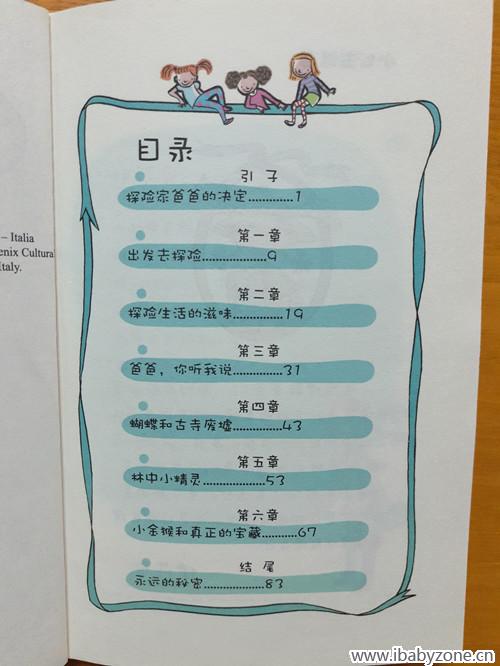 – Italia
enix Cultura
Italy.
目录
引 子
探险家爸爸的决定.............1
第一章
出发去探险...................9
第二章
探险生活的滋味...............19
第三章
爸爸，你听我说...............31
第四章
蝴蝶和古寺废墟...............43
第五章
林中小精灵...................53
第六章
小金猴和真正的宝藏...........67
结 尾
永远的秘密...................83
www.ibabyzone.cn